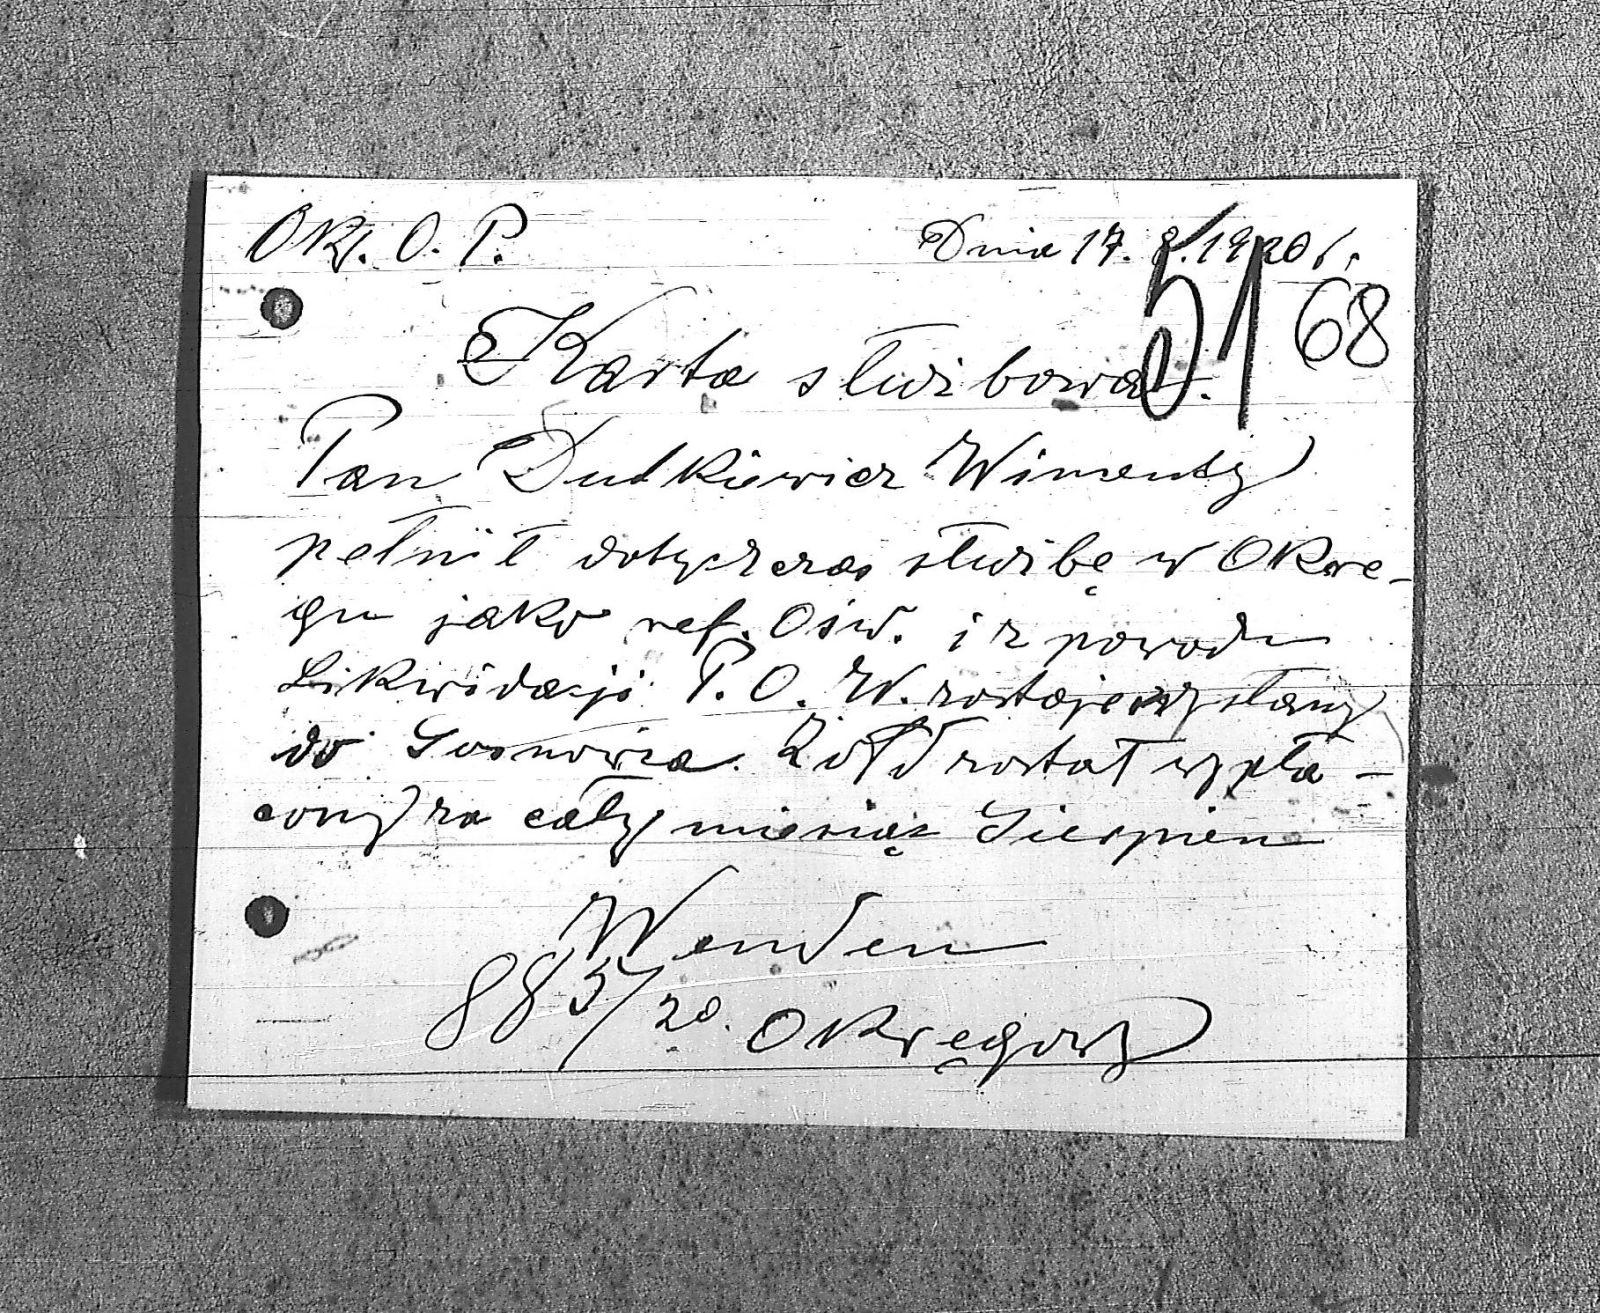 Okr. O. P. Dnia 17. 8. 1920 r.
51 68
Karta służbowa.
Pan Dudkiewicz Wincenty
pełnił dotychczas służbę w Okrę-
gu jako ref. Ośw. i z powodu
Likwidacji P. O. W. zostaje wysłany
do Sosnowca. Żołd został wypła-
cony za cały miesiąc Sierpień
885/20. Okręgowy